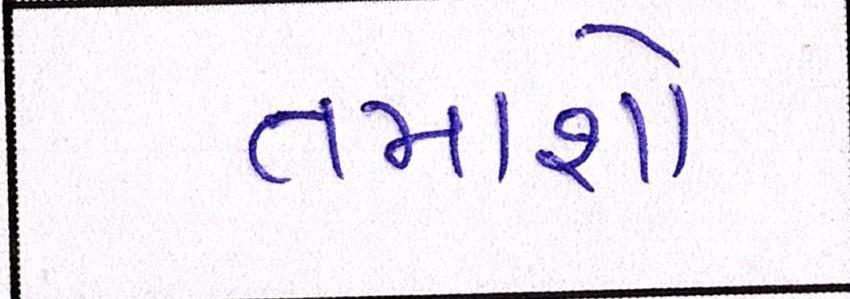 તમાશો